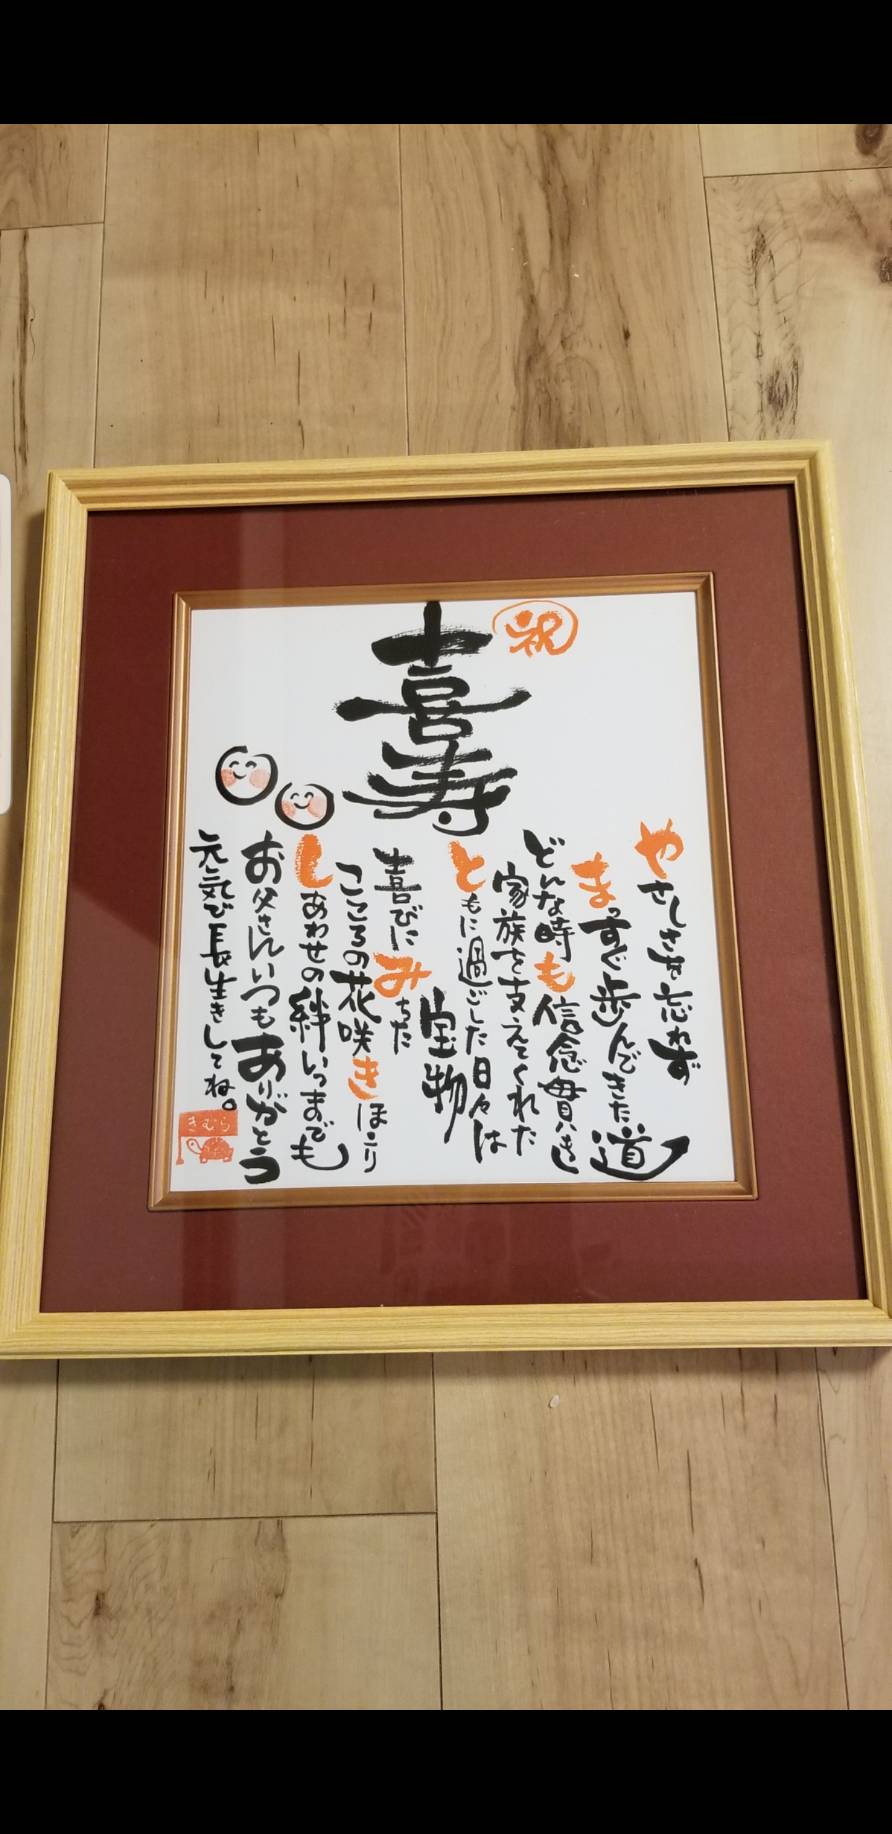 祝
喜寿
やさしさを忘れず
まっすぐ歩んできた道
どんな時も信念貫いき
家族を支えてくれた
ともに過ごした日々は
宝物
喜びにみちた
こころの花咲きほこり
しあわせの絆いつまでも
お父さんいつもありがとう
元気で長生きしてね。
きむら